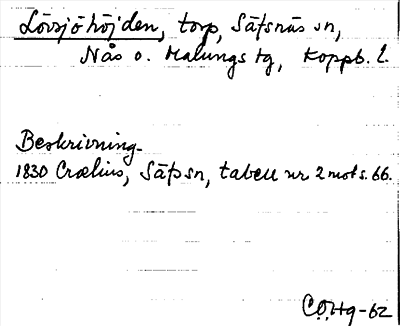 Lövsjöhöjden, torp, Säfsnäs sn,
Nås o. Malungs tg, Koppb. l.
Beskrivning.
1830 Crælius, Säfs sn, tabell nr 2 mot s. 66.
C.O.Hg-62